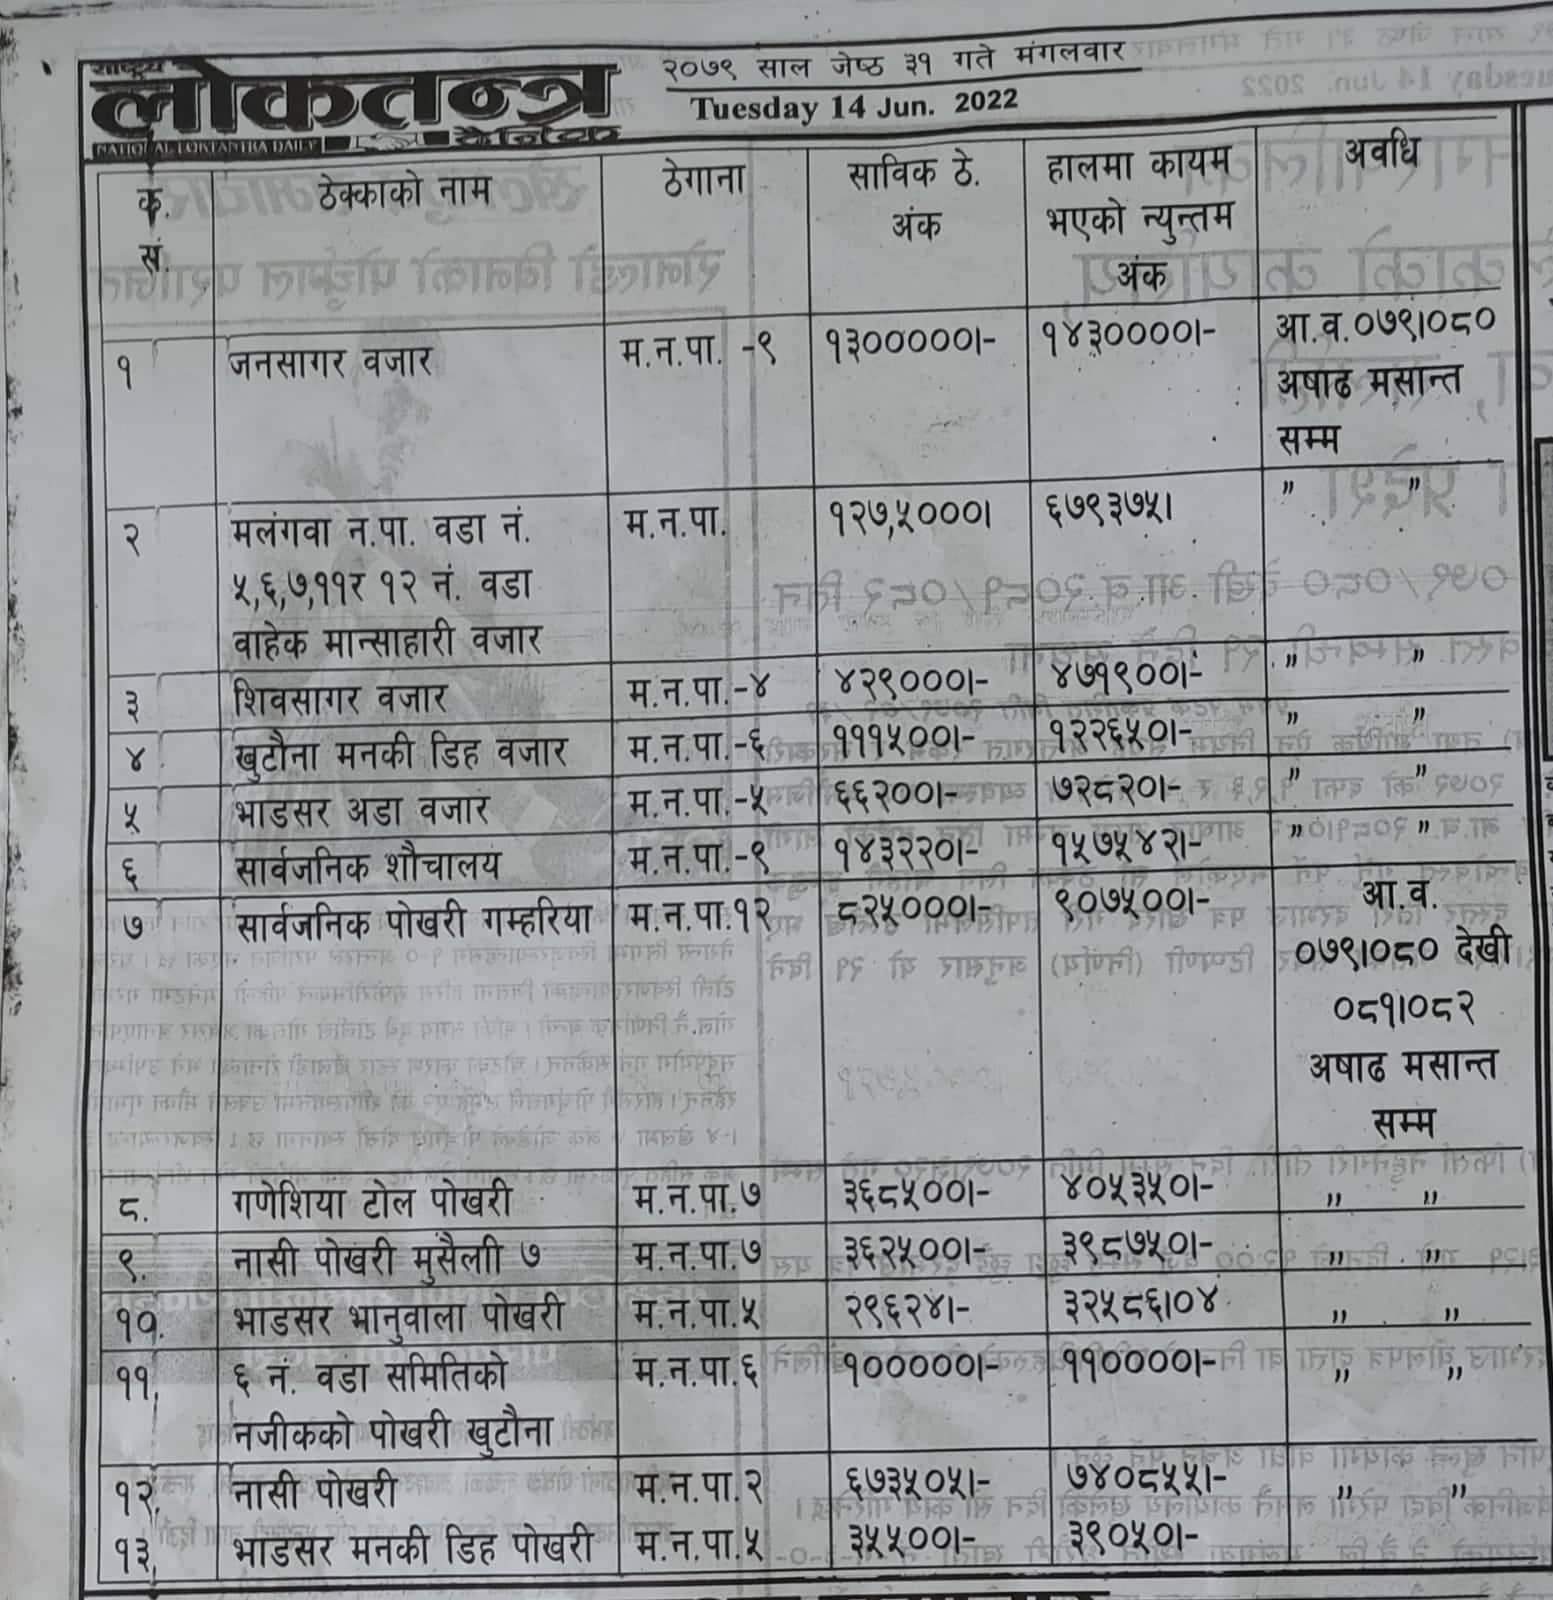 राष्ट्रिय
लोकतन्त्र
दैनिक
NATIONAL LOKTANTRA DAILY
२०७९ साल जेष्ठ ३१ गते मंगलवार
Tuesday 14 Jun. 2022
क्र. सं. ठेक्काको नाम ठेगाना साविक ठे. अंक हालमा कायम भएको न्युन्तम अंक अवधि
१ जनसागर वजार म.न.पा. -९ १३०००००।- १४३००००।- आ.व.०७९।०८०
अषाढ मसान्त
सम्म
२ मलंगवा न.पा. वडा नं. म.न.पा. १२७,५०००। ६७९३७५। " "
५,६,७,११र १२ नं. वडा
वाहेक मान्साहारी वजार
३ शिवसागर वजार म.न.पा.-४ ४२९०००।- ४७१९००।- " "
४ खुटौना मनकी डिह वजार म.न.पा.-६ १११५००।- १२२६५०।- " "
५ भाडसर अडा वजार म.न.पा.-५ ६६२००।- ७२८२०।- " "
६ सार्वजनिक शौचालय म.न.पा.-९ १४३२२०।- १५७५४२।- " "
७ सार्वजनिक पोखरी गम्हरिया म.न.पा.१२ ८२५०००।- ९०७५००।- आ.व.
०७९।०८० देखी
०८१।०८२
अषाढ मसान्त
सम्म
८. गणेशिया टोल पोखरी म.न.पा.७ ३६८५००।- ४०५३५०।- " "
९. नासी पोखरी मुसैलाी ७ म.न.पा.७ ३६२५००।- ३९८७५०।- " "
१०. भाडसर भानुवाला पोखरी म.न.पा.५ २९६२४।- ३२५८६।०४ " "
११. ६ नं. वडा समितिको म.न.पा.६ १०००००।- ११००००।- " "
नजीकको पोखरी खुटौना
१२. नासी पोखरी म.न.पा.२ ६७३५०५।- ७४०८५५।- " "
१३. भाडसर मनकी डिह पोखरी म.न.पा.५ ३५५००।- ३९०५०।-